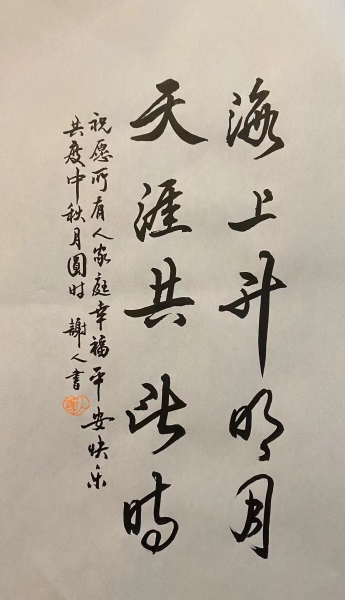 海上升明月
天涯共此时
祝愿所有人家庭幸福平安快乐
共度中秋月圆时 謝人書